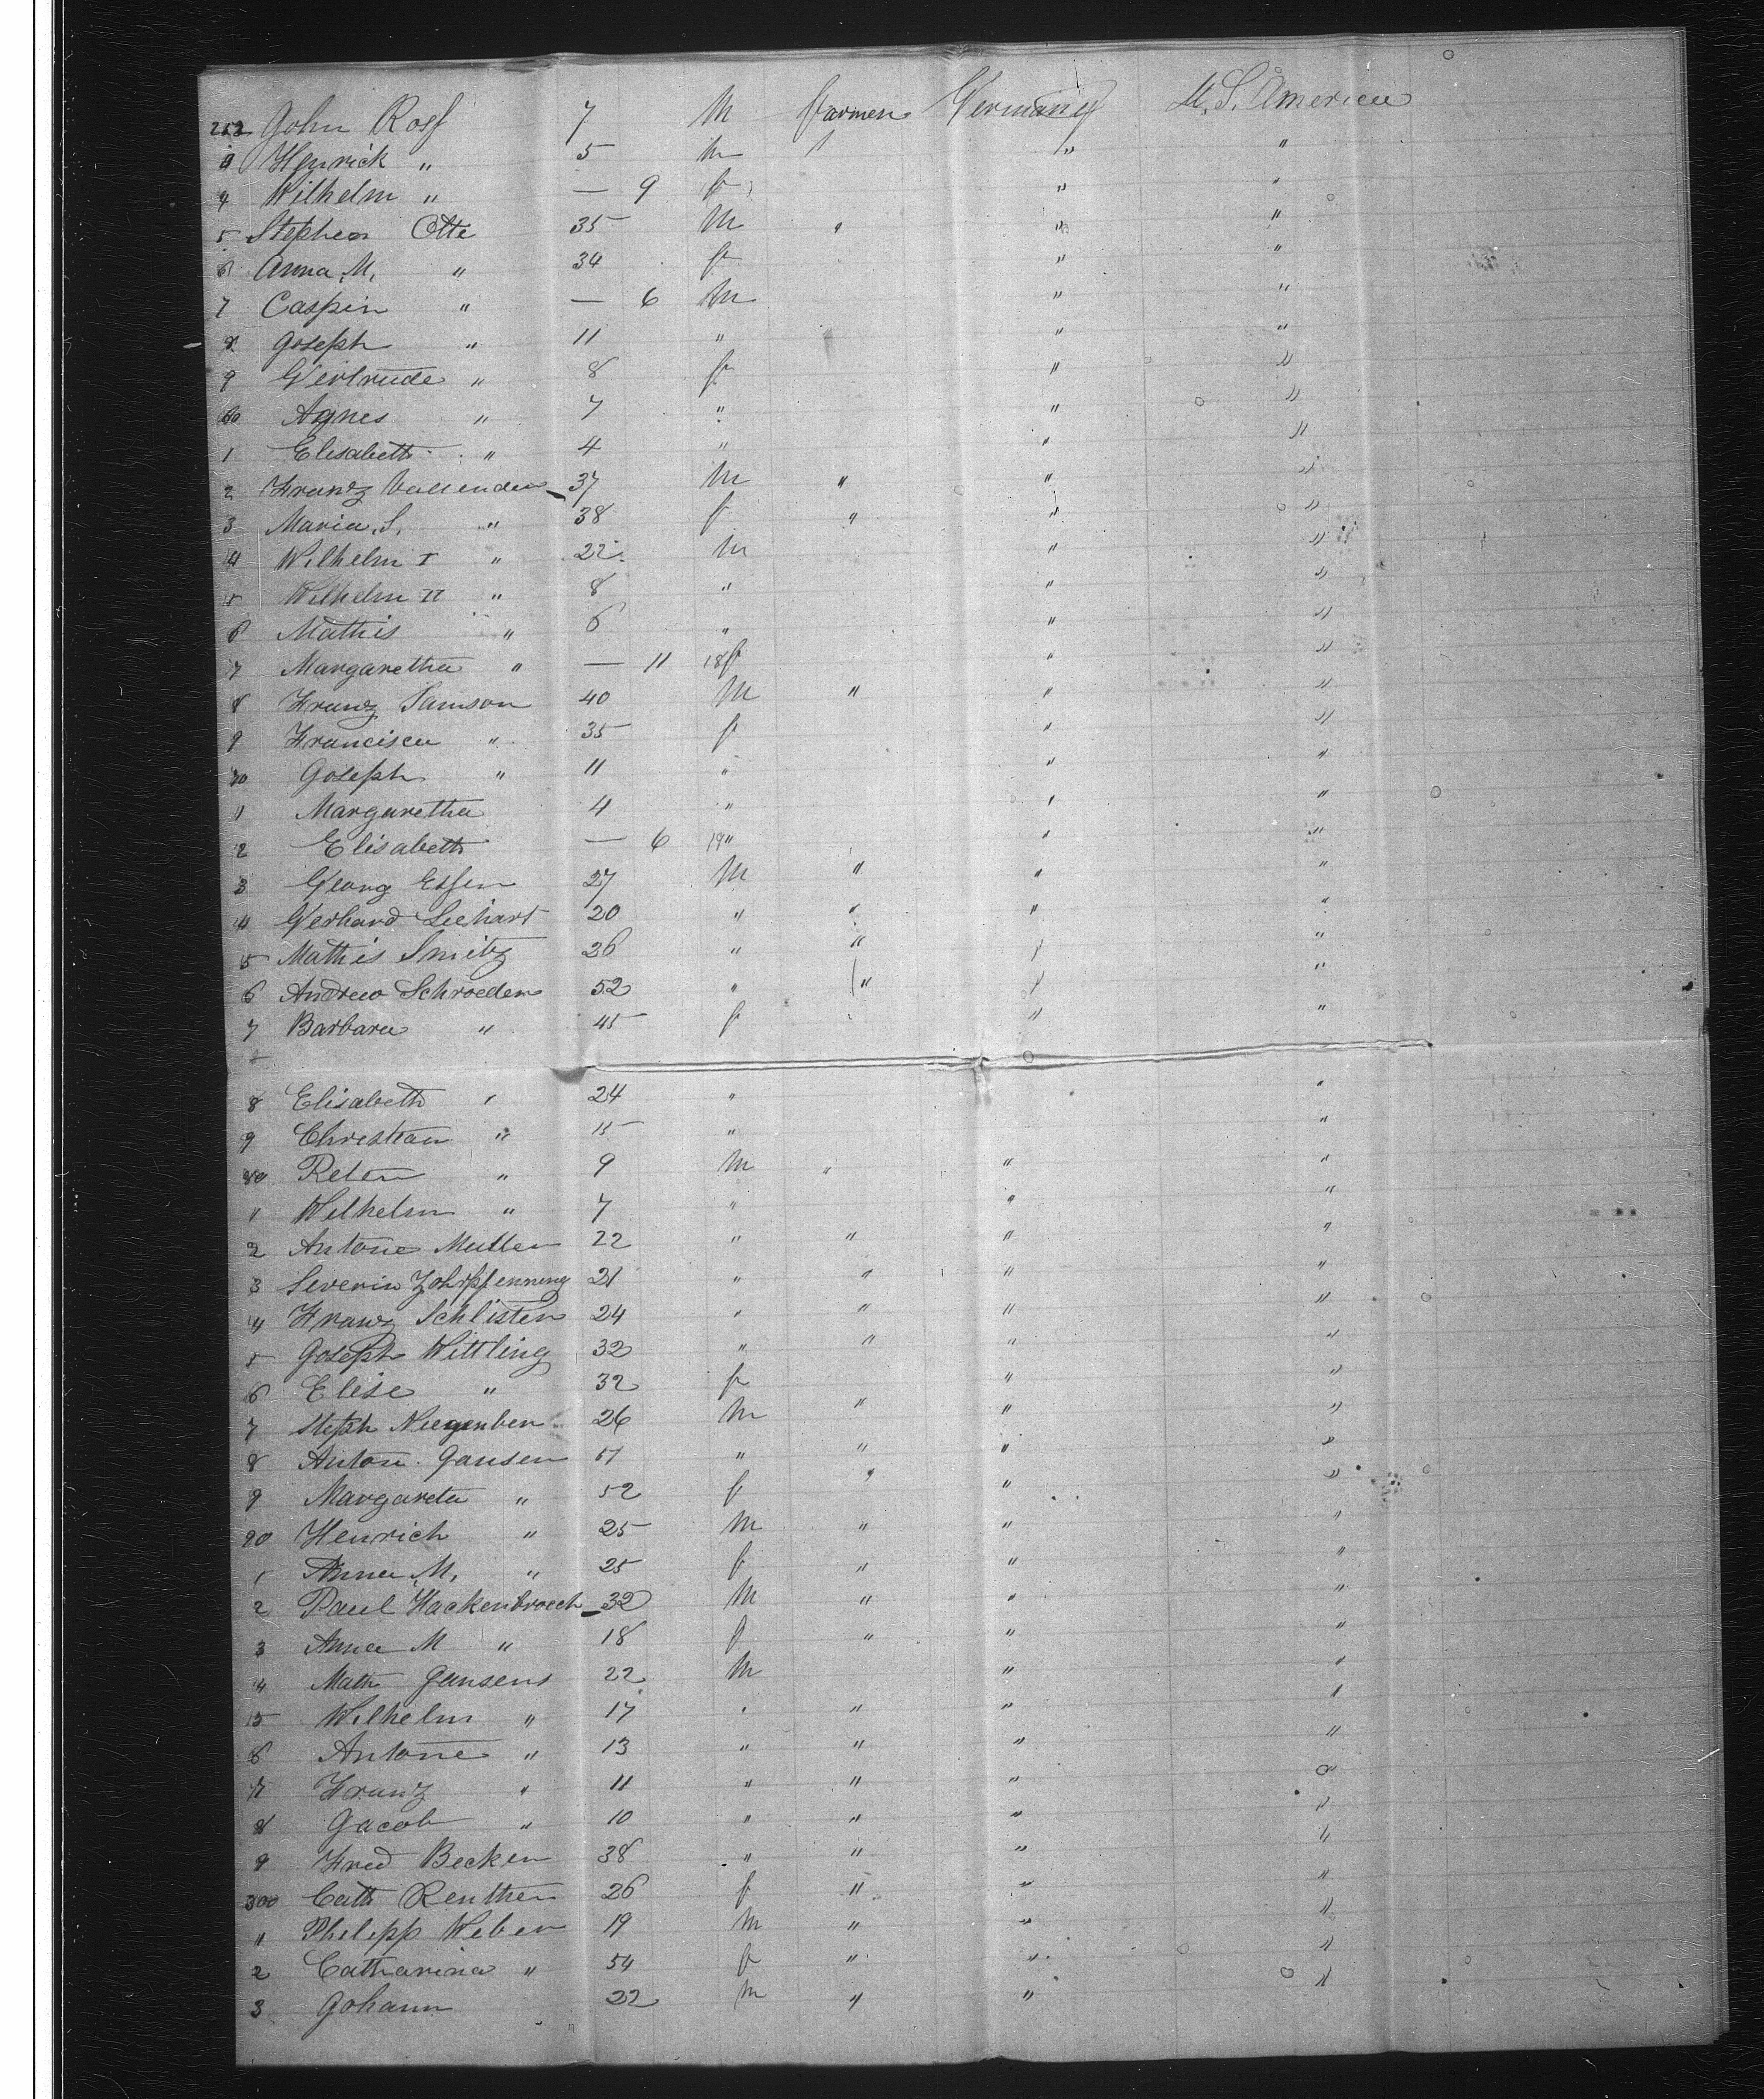 252 John Rosf 7 M farmer Germany U. S. America
3 Henrick " 5 m " " "
4 Wilhelm " — 9 f " "
5 Stephen Otte 35 M " " "
6 Anna M. " 34 f " "
7 Caspin " — 6 M " "
8 Joseph " 11 " " "
9 Gertrude " 8 f " "
60 Agnes " 7 " " "
1 Elisabeth " 4 " " "
2 Franz 37 M " " "
3 Maria S. " 38 f " " "
4 Wilhelm I " 22 M " "
5 Wilhelm II " 8 " " "
6 Mathis " 6 " " "
7 Margaretha " — 11 18 f " "
8 Franz Samson 40 M " " "
9 Francisca " 35 f " "
70 Joseph " 11 " " "
1 Margaretha 4 " " "
2 Elisabeth — 6 19 " " "
3 Georg Essen 27 M " " "
4 Gerhard 20 " " " "
5 Mathis Smitz 26 " " " "
6 Andrew Schroeder 52 " " " "
7 Barbara " 45 f " "
8 Elisabeth " 24 " "
9 Christian " 15 " "
80 Peter " 9 M " " "
1 Wilhelm " 7 " " "
2 Antone Muller 22 " " " "
3 Severin 21 " " " "
4 Franz Schlisten 24 " " " "
5 Joseph Wittling 32 " " " "
6 Elise " 32 f " "
7 Steph 26 M " " "
8 Anton Jansen 51 " " " "
9 Margareta " 52 f " " "
90 Henrich " 25 M " " "
1 Anna M. " 25 f " " "
2 Paul Hackenbroech 32 M " " "
3 Anna M " 18 f " " "
4 Math Jansens 22 M " "
5 Wilhelm " 17 " " " "
6 Antone " 13 " " " "
7 Franz " 11 " " " "
8 Jacob " 10 " " " "
9 Fred Becker 38 " " " "
300 Cath Renther 26 f " " "
" Philipp Weber 19 M " " "
2 Catharina " 54 f " " "
3 Johann 22 M " " "